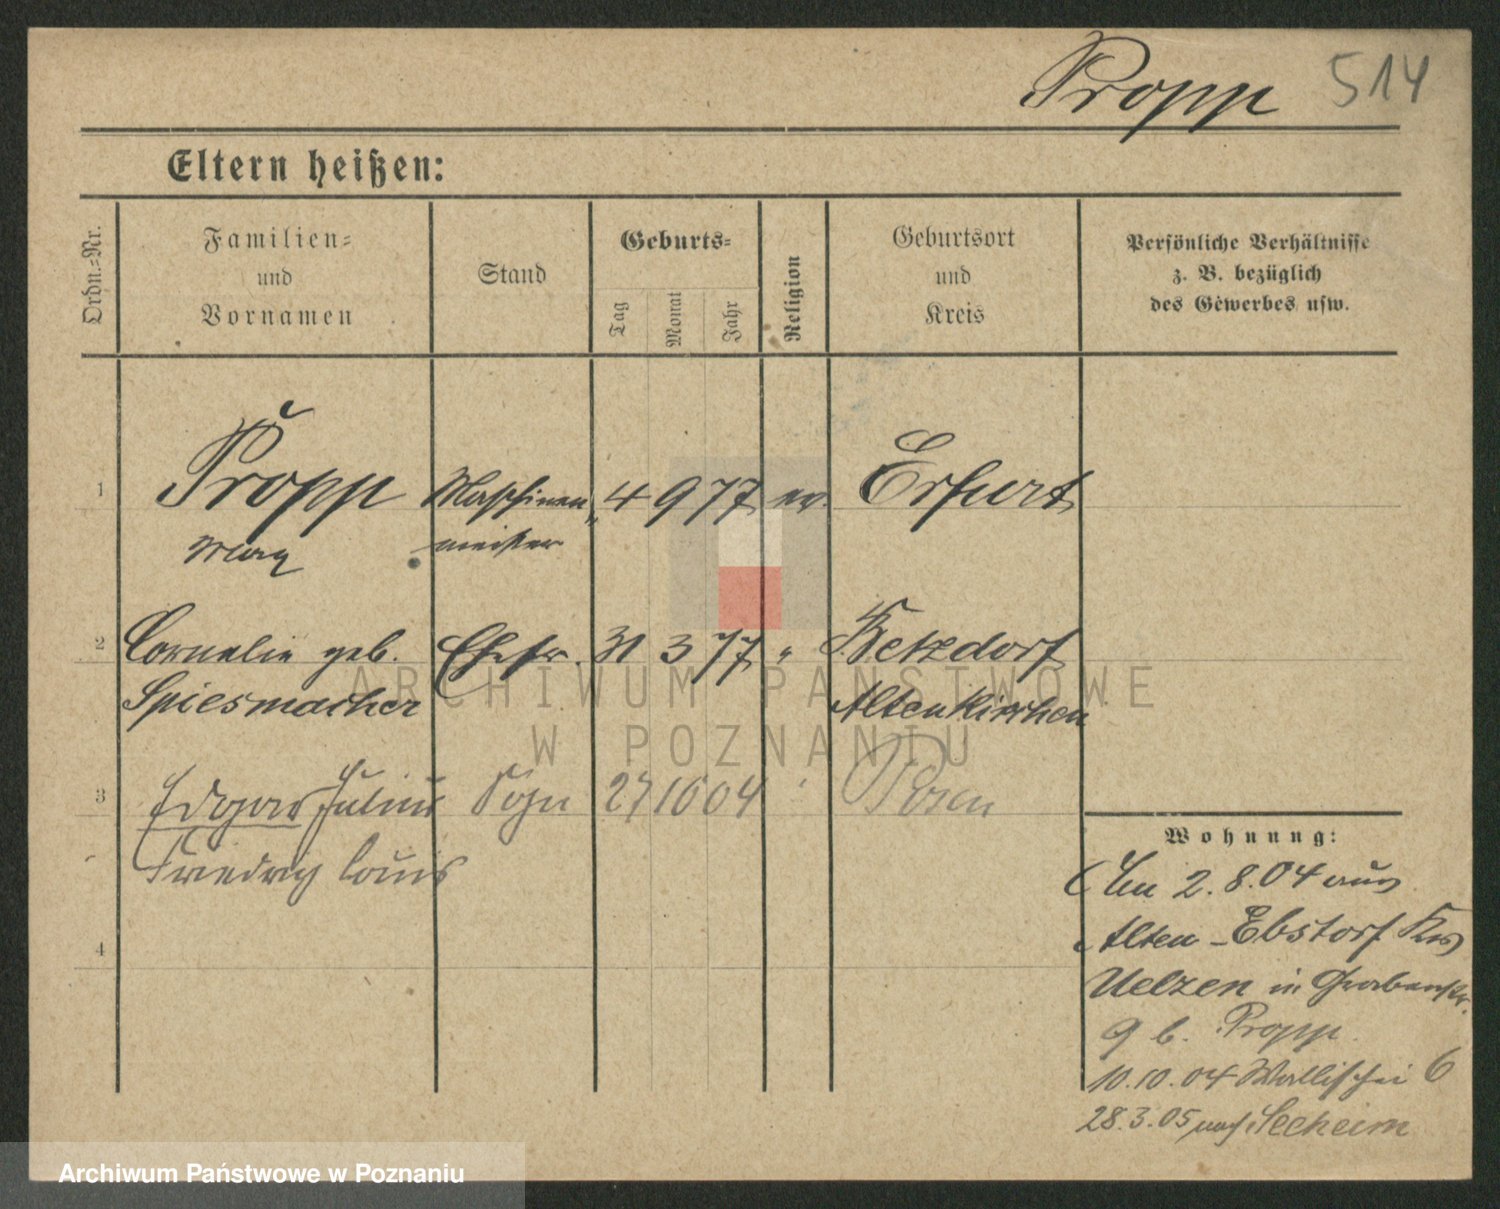 Propp 514
Eltern heißen:
Ordn.-Nr.
Familien-
und
Vornamen
Stand
Geburts-
Tag
Monat
Jahr
Religion
Geburtsort
und
Kreis
Persönliche Verhältnisse
z. B. bezüglich
des Gewerbes usw.
1 Propp Maschinen 4 9 77 ev. Erfurt
Max meister
2 Cornelie geb. Ehefr. 31 3 77 " Betzdorf
Spiesmacher Altenkirchen
3 Edgar Julius Sohn 27 10 04 Posen
Friedrich Louis
4
Wohnung:
Am 2.8.04 aus
Alten-Ebstorf Krs
Uelzen in Grabenstr.
9 b. Propp
10.10.04 Wallischei 6
28.3.05 nach Seeheim
ARCHIWUM PAŃSTWOWE
W POZNANIU
Archiwum Państwowe w Poznaniu